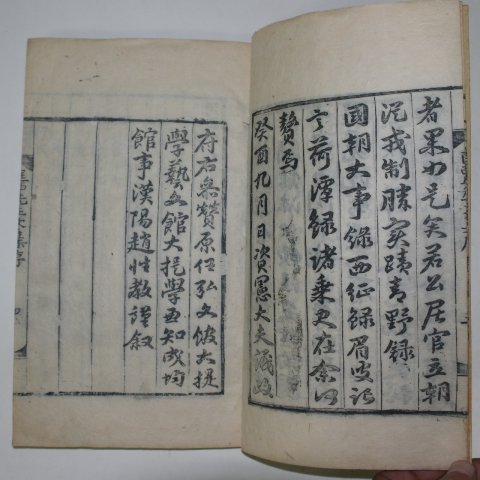 者果如是矣若公居官立朝
況戎制勝實蹟青野錄
國朝大事錄西征錄眉叟記
言荷潭錄諸乘更在余何
贅焉
癸酉九月日資憲大夫議政
府右參贊原任弘文館大提
學藝文館大提學知成均
館事漢陽趙性教謹敘